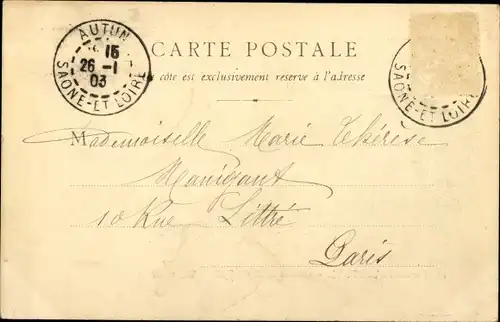 CARTE POSTALE
Ce côté est exclusivement réservé à l'adresse
AUTUN
15
26 -1
03
SAONE-ET LOIRE
SAONE-ET LOIRE
Mademoiselle Marie Thérèse
10 Rue Littré
Paris